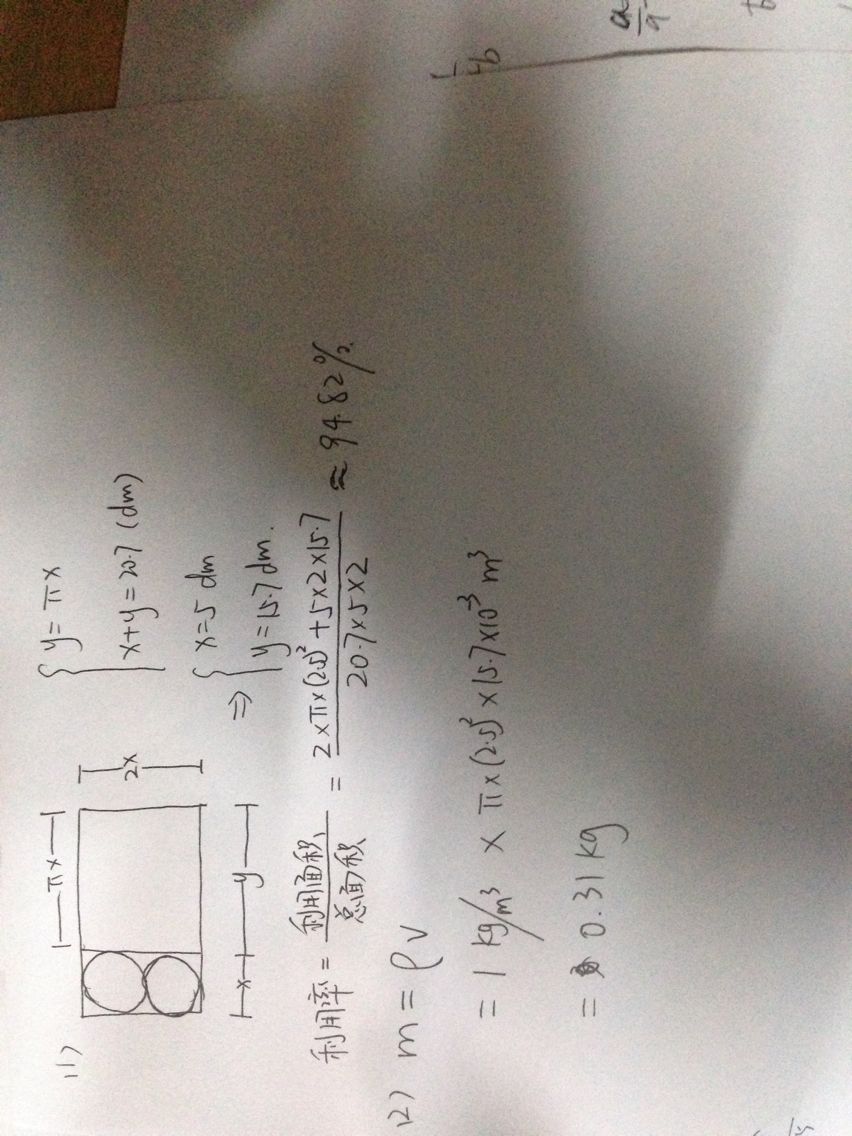 (1)
πx
2x
x
y
{ y = πx
x+y = 20.7 (dm)
⇒ { x = 5 dm
y = 15.7 dm.
利用率 = 利用面积 / 总面积 = 2×π×(2.5)² + 5×2×15.7 / 20.7×5×2 ≈ 94.82%.
(2) m = ρv
= 1 kg/m³ × π×(2.5)²×15.7×10⁻³ m³
= 0.31 kg